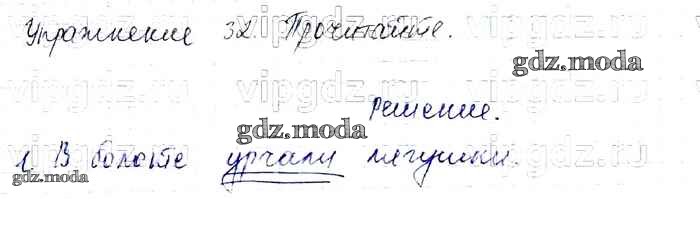 Упражнение 32 Прочитайте.
gdz.moda
Решение.
gdz.moda
1. В болоте урчали лягушки.
gdz.moda